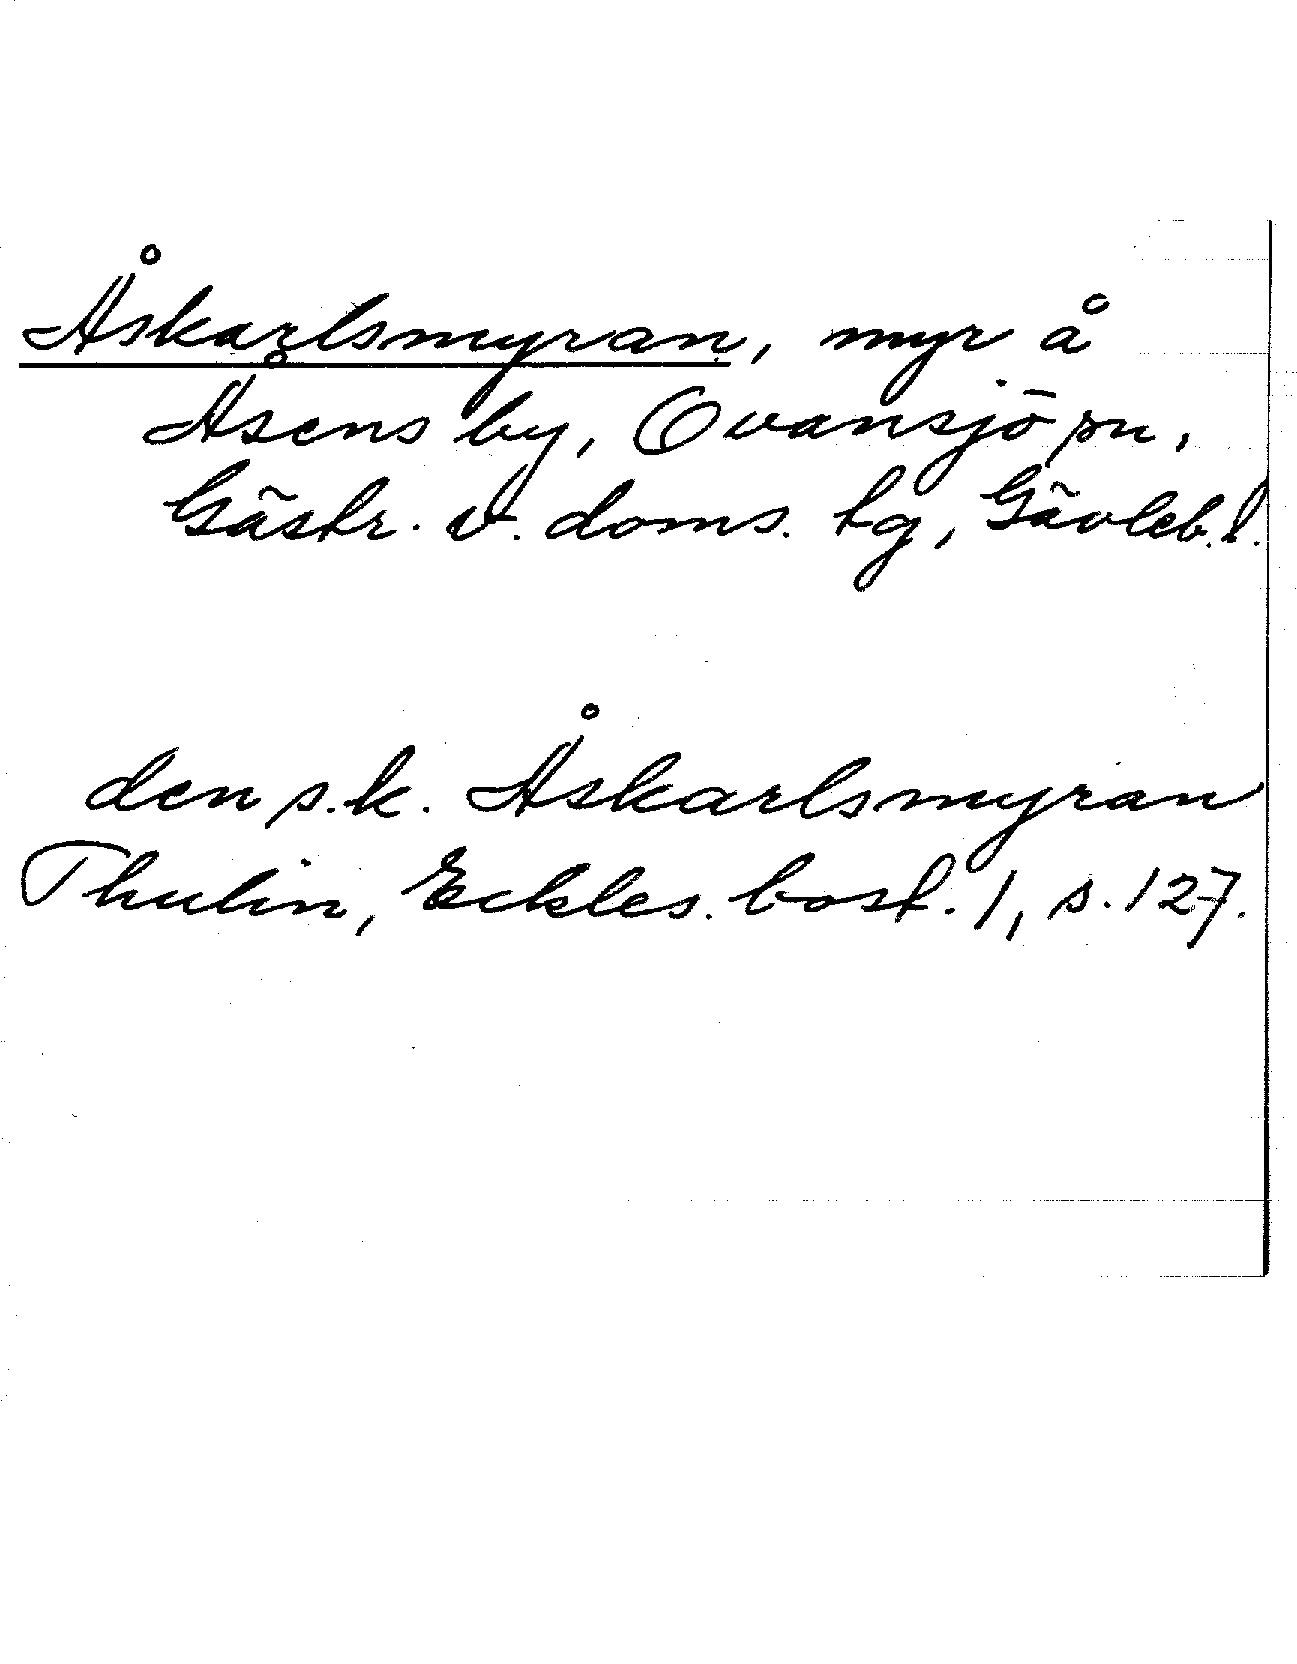 Åskarlsmyran, myr å
Åsens by, Ovansjö sn,
Gästr. v. doms. tg, Gävleb. l.
den s.k. Åskarlsmyran
Thulin, Eckles. bost. 1, s. 127.